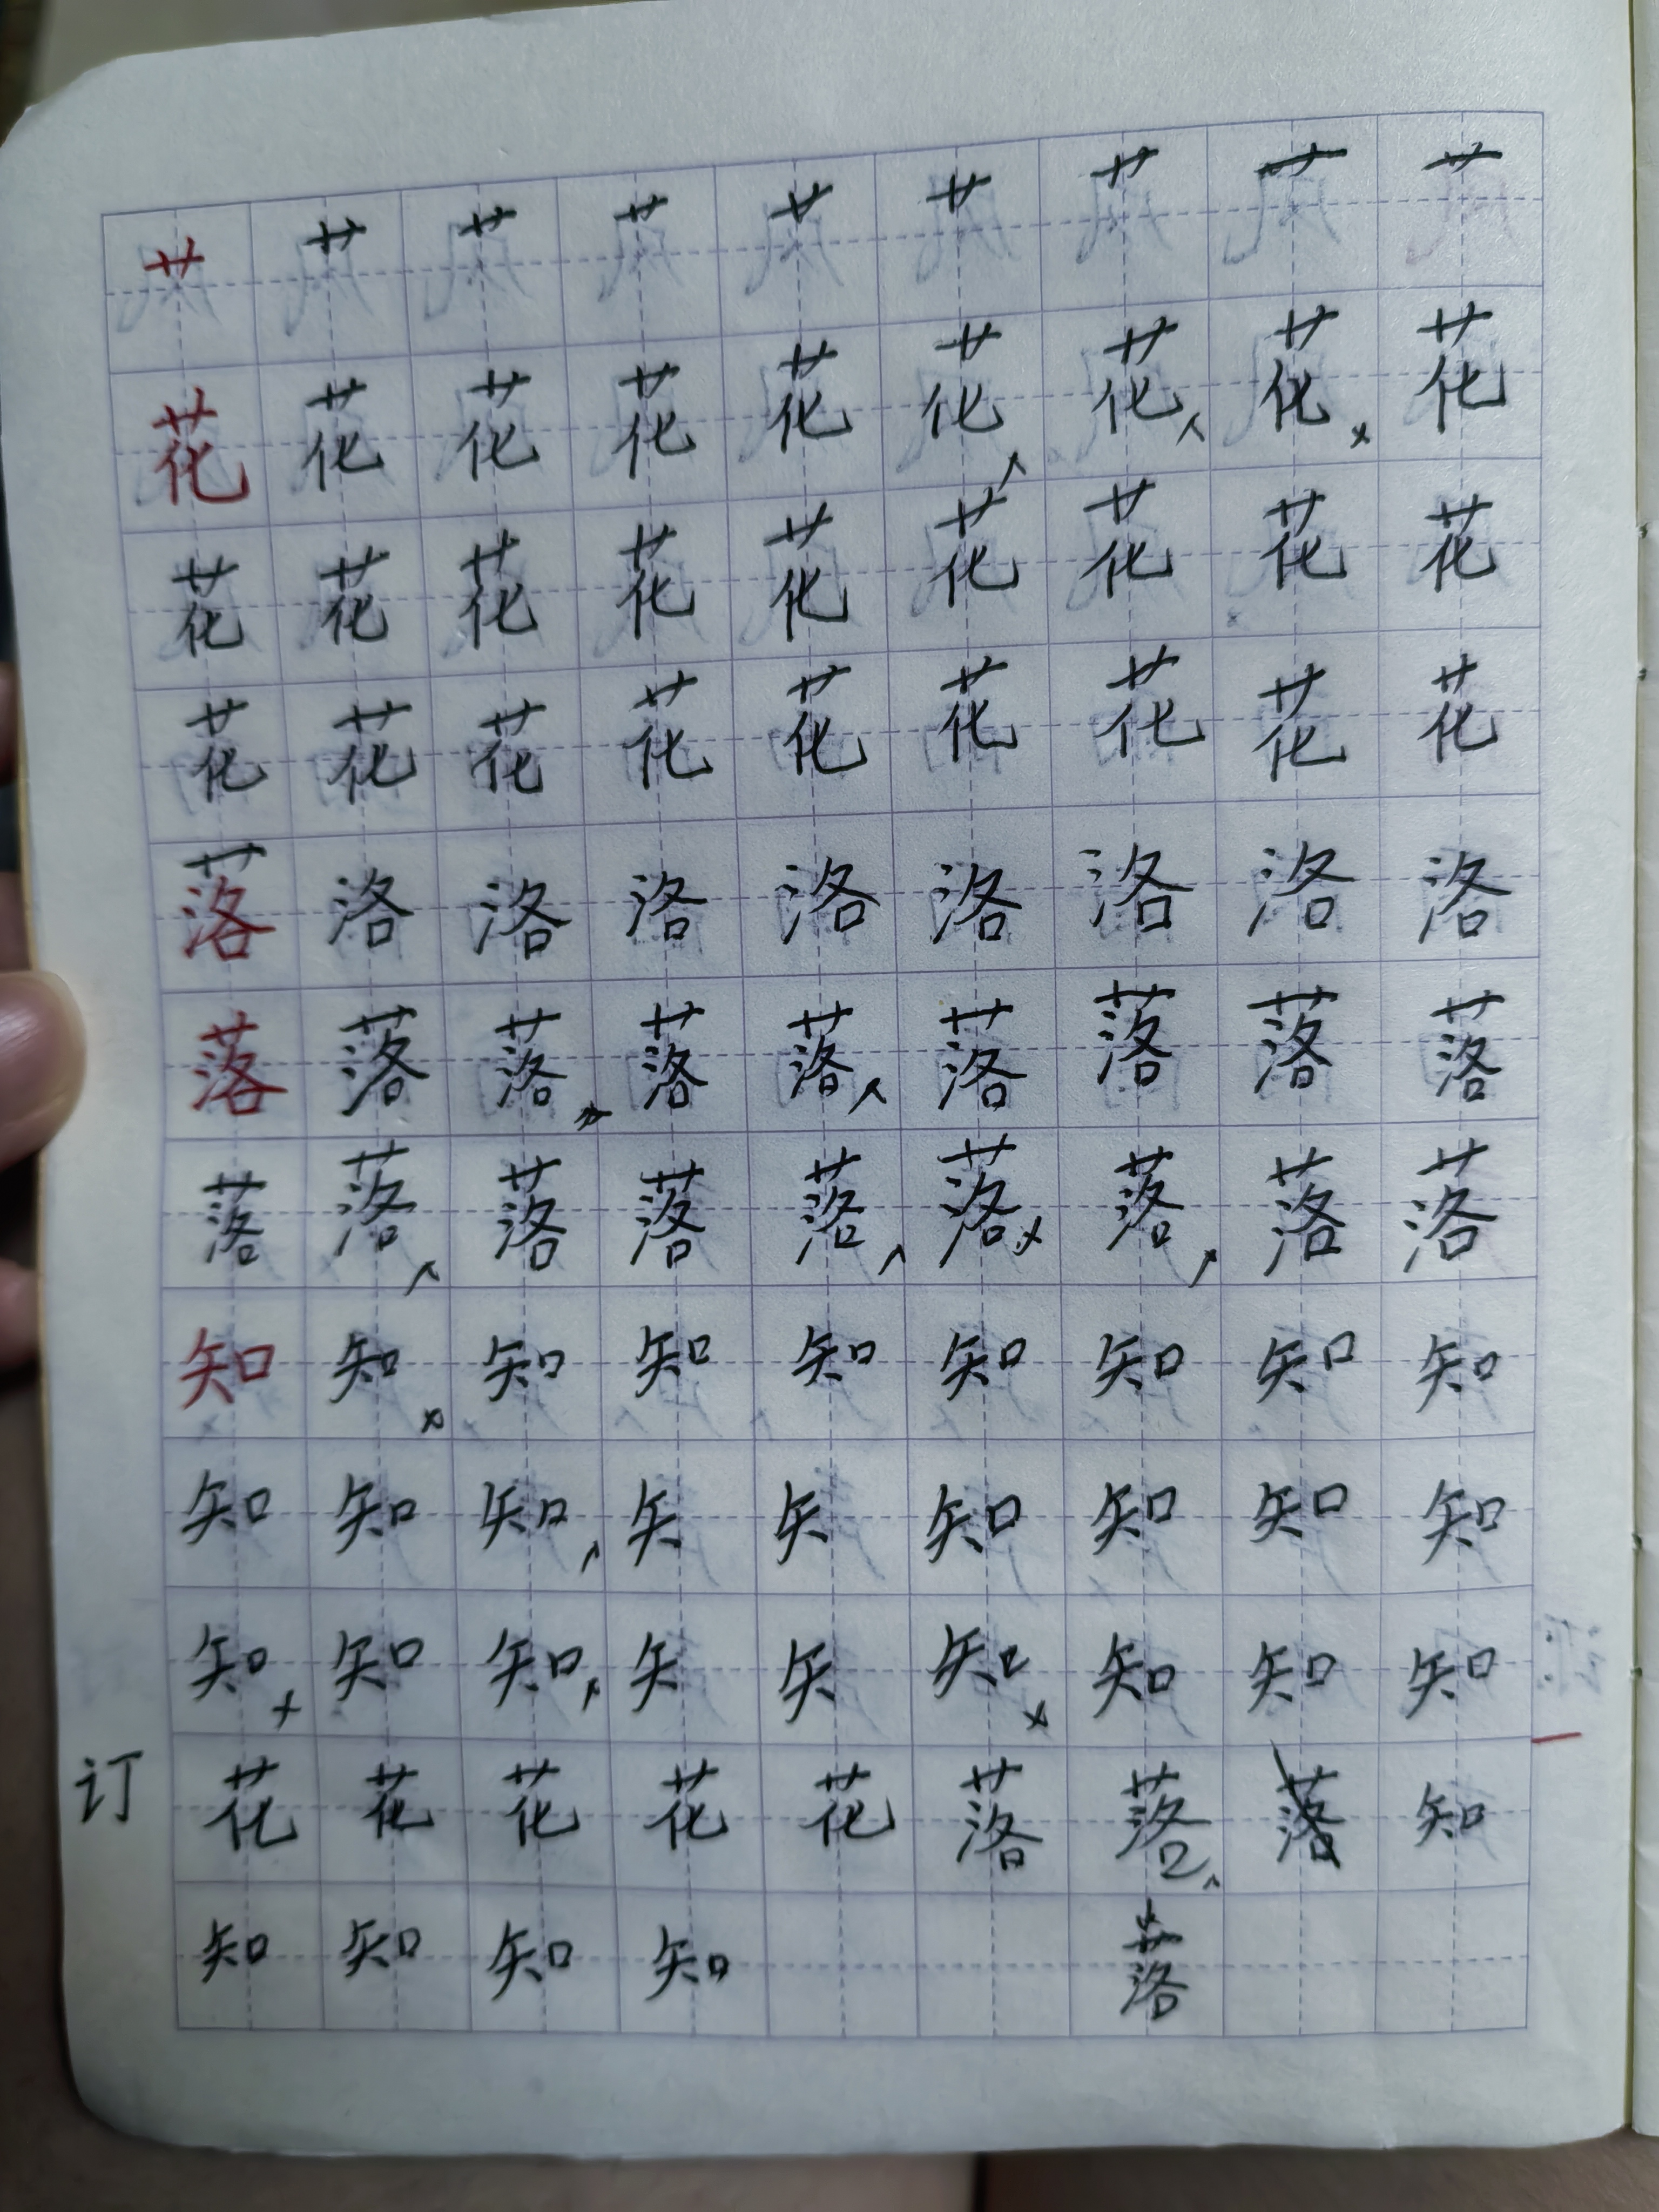 艹 艹 艹 艹 艹 艹 艹 艹 艹
花 花 花 花 花 花 花 花 花
花 花 花 花 花 花 花 花 花
花 花 花 花 花 花 花 花 花
落 洛 洛 洛 洛 洛 洛 洛 洛
落 落 落 落 落 落 落 落 落
落 落 落 落 落 落 落 落 落
知 知 知 知 知 知 知 知 知
知 知 知 矢 矢 知 知 知 知
知 知 知 矢 矢 知 知 知 知
订 花 花 花 花 花 落 落 落 知
知 知 知 知 落